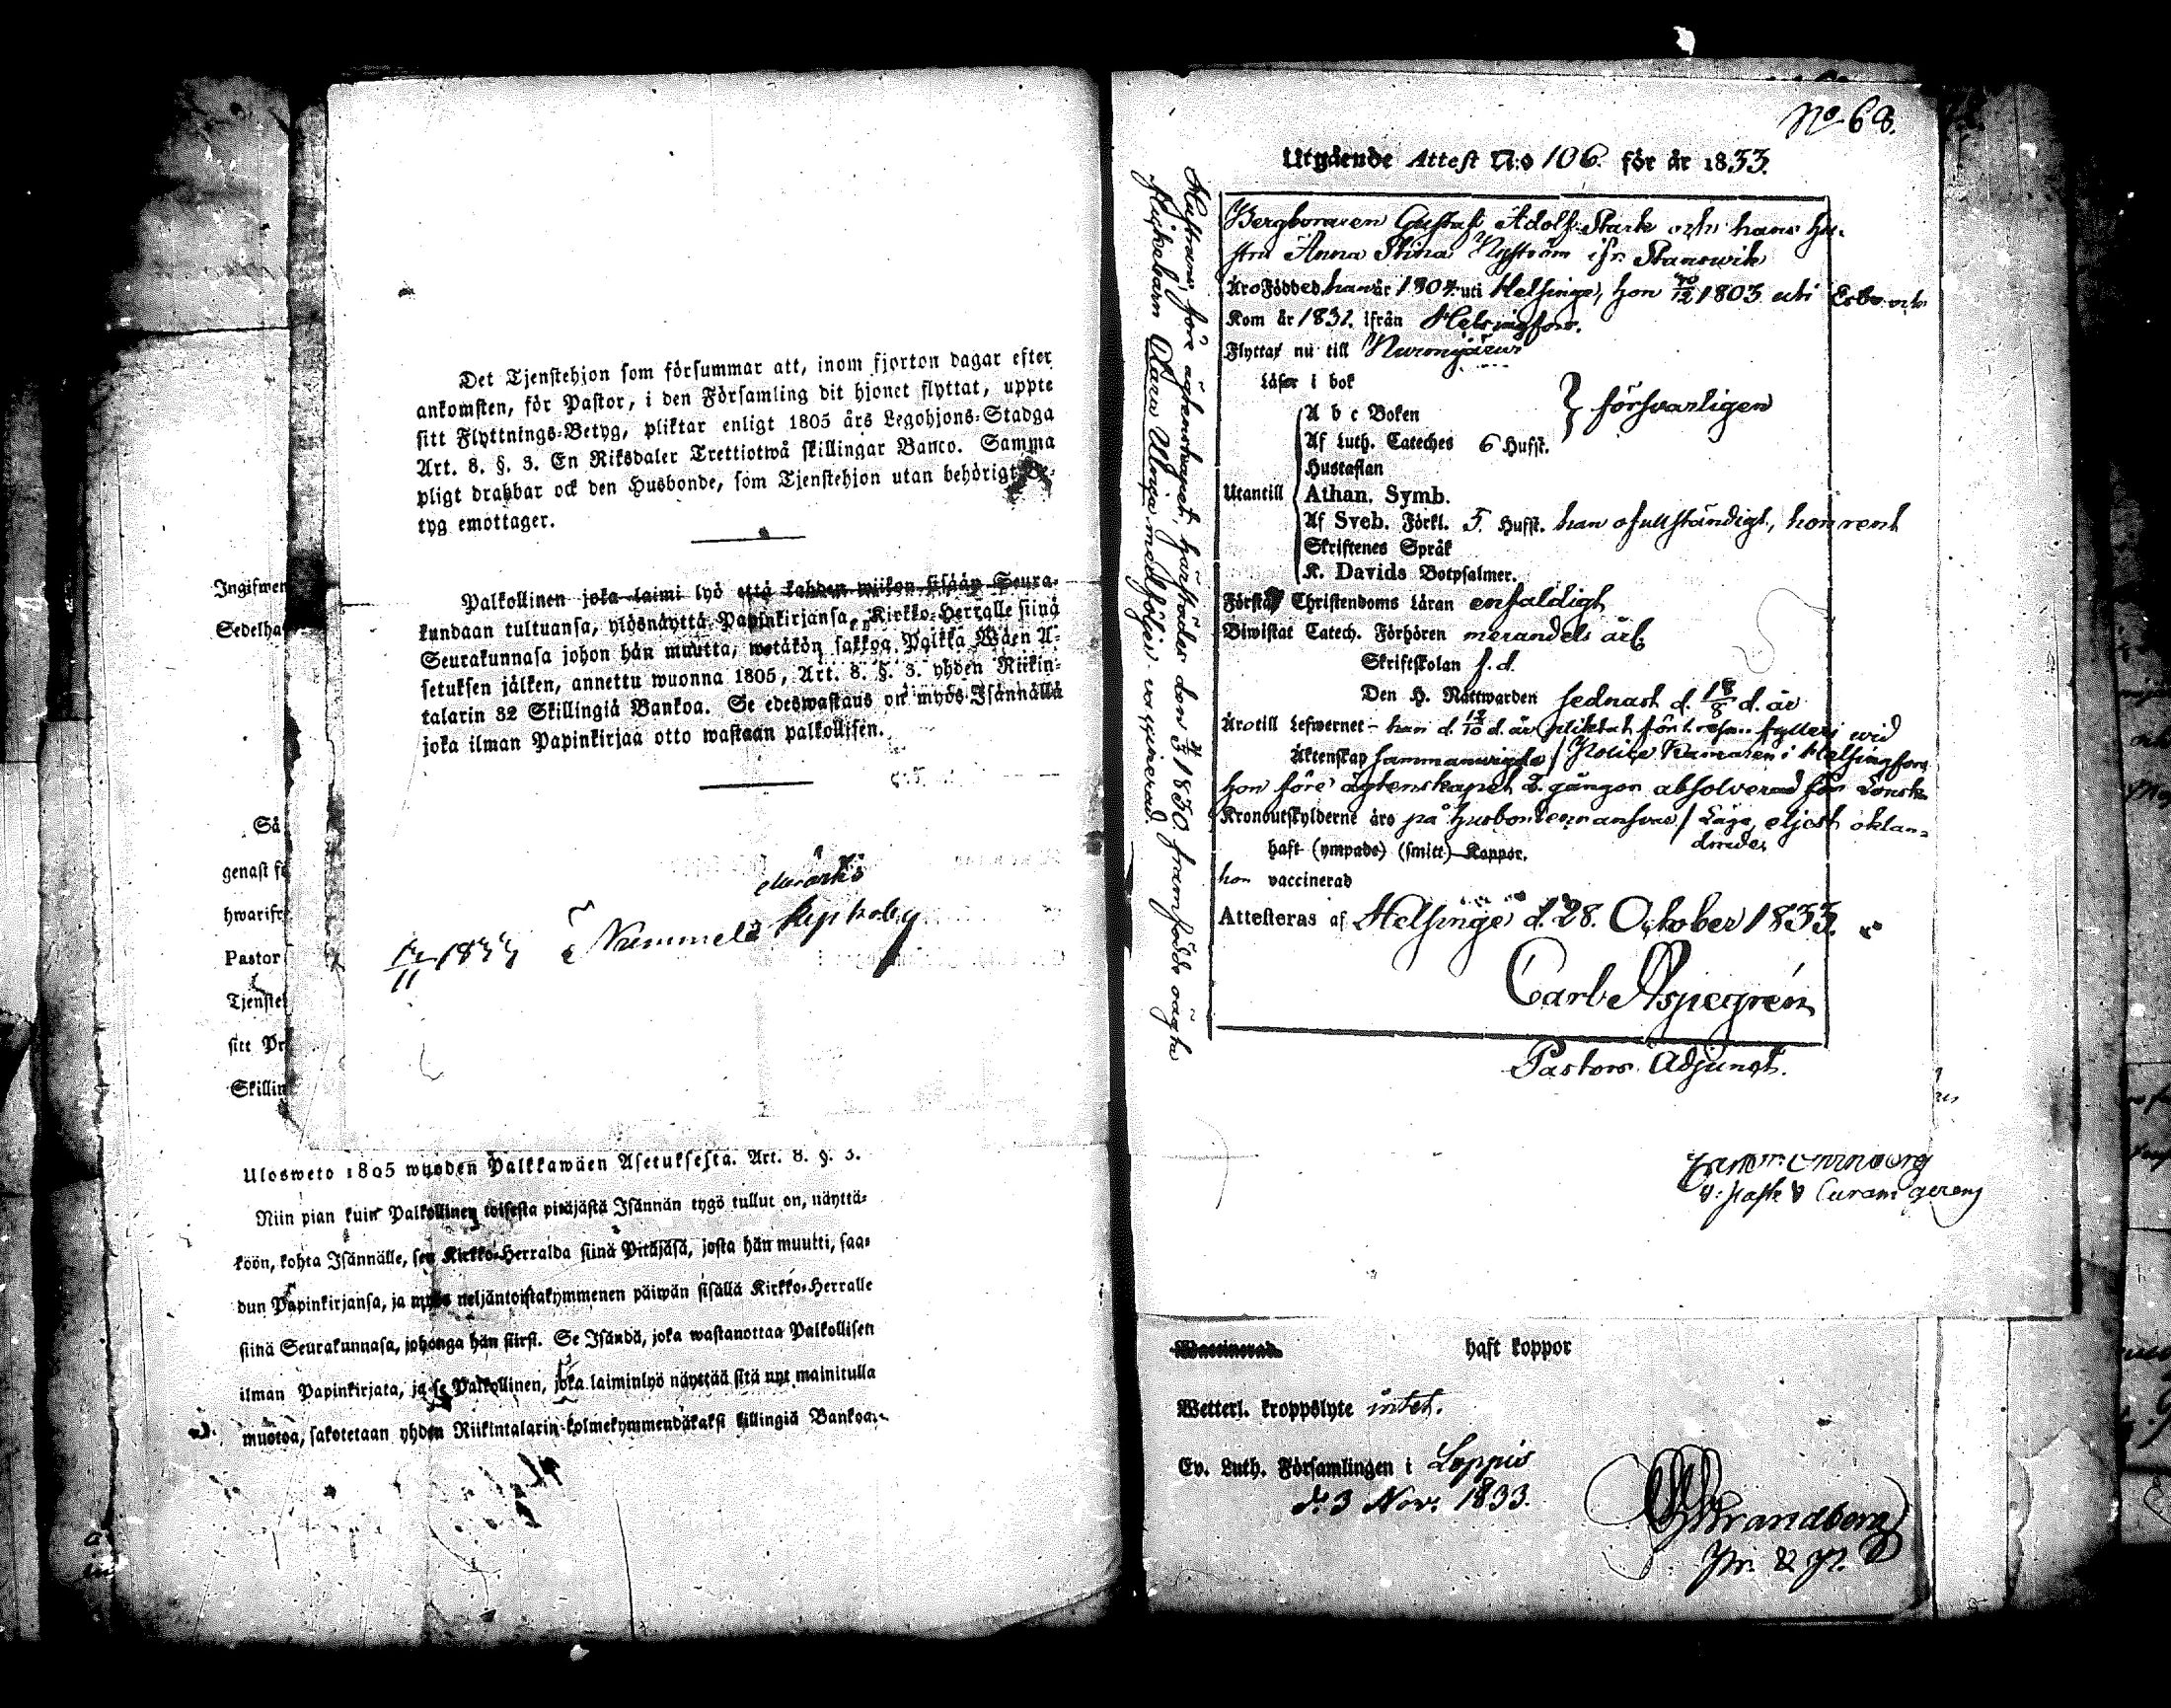 Det Tjenstehjon som försummar att, inom fjorton dagar efter
ankomsten, för Pastor, i den Församling dit hjonet flyttat, uppte
sitt Flyttnings-Betyg, pliktar enligt 1805 års Legohjons-Stadga
Art. 8. §. 3. En Riksdaler Trettiotwå skillingar Banco. Samma
pligt drabbar ock den Husbonde, som Tjenstehjon utan behörigt Be-
tyg emottager.
Palkollinen joka laimi lyö että kahden wiikon sisään Seura-
kundaan tultuansa, ylösnäyttä Papinkirjansa, Kirkko-Herralle siinä
Seurakunnasa johon hän muutta, wetäkön sakkoa Palkka Wäen A-
setuksen jälken, annettu wuonna 1805, Art. 8. §. 3. yhden Riikin-
talarin 32 Skillingiä Bankoa. Se edeswastaus on myös Isännällä
joka ilman Papinkirjaa otto wastaan palkollisen.
Nummela
Ingifwen
Sedelha
Så
genast fö
hwarifr
Pastor
Tjenste
sitt Pr
Skillin
Ulosweto 1805 wuoden Palkkawäen Asetuksesta. Art. 8. §. 3.
Niin pian kuin Palkollinen toisesta pitäjästä Isännän tygö tullut on, näyttä-
köön, kohta Isännälle, sen Kirkko-Herralda siinä Pitäjäsä, josta hän muutti, saa-
dun Papinkirjansa, ja myös neljäntoistakymmenen päiwän sisällä Kirkko-Herralle
siinä Seurakunnasa, johonga hän siirsi. Se Isändä, joka wastanottaa Palkollisen
ilman Papinkirjata, ja se Palkollinen, joka laiminlyö näyttää sitä nyt mainitulla
muotoa, sakotetaan yhden Riikintalarin kolmekymmendäkaksi killingiä Bankoa.
No 68.
Utgående Attest N:o 106. för år 1833.
Bergborraren Gustaf Adolf Stark och hans hu-
stru Anna Stina Nyström ifr. Stanswik
Äro Födde han år 1807 uti Helsinge, hon 1803 uti Esbo och
Kom år 1831. ifrån Helsingfors.
Flyttar nu till Nurmijärwi
Läser i bok
A b c Boken } försvarligen
Af Luth. Cateches 6 Hufst.
Hustaflan
Utantill Athan. Symb.
Af Sveb. Förkl. 5. Hufst. han ofullständigt, hon rent
Skriftenes Språk
K. Davids Botpsalmer.
Förstå Christendoms Läran enfaldigt
Biwistat Catech. Förhören merandels årl.
Skriftskolan s. d.
Den H. Nattwarden sednast d. 18/8 d. år
Äro till Lefwernet han d. d. år pliktat för 1. resan fylleri wid
Äktenskap sammanvigde / Police Kamaren i Helsingfors
hon före ägtenskapet 2. gången absolverad för Lönsk
Kronoutskylderne äro på husbondens ansvar / Läge, eljest oklan-
drade
haft (ympade) (smitt) Koppor.
hon vaccinerad
Attesteras af Helsinge d. 28. October 1833.
Carl Aspegrén
Pastors Adjunct.
Hustruns, före ägtenskapet, härstädes den 1830. framfödde oägta
flickebarn Clara Ulrica medföljer. vaccinerad.
v: Past: Curam gerens
Waccinerad haft koppor
Wetterl. kroppslyte intet.
Ev. Luth. Församlingen i Loppis
d. 3 Nov: 1833.
Strandberg